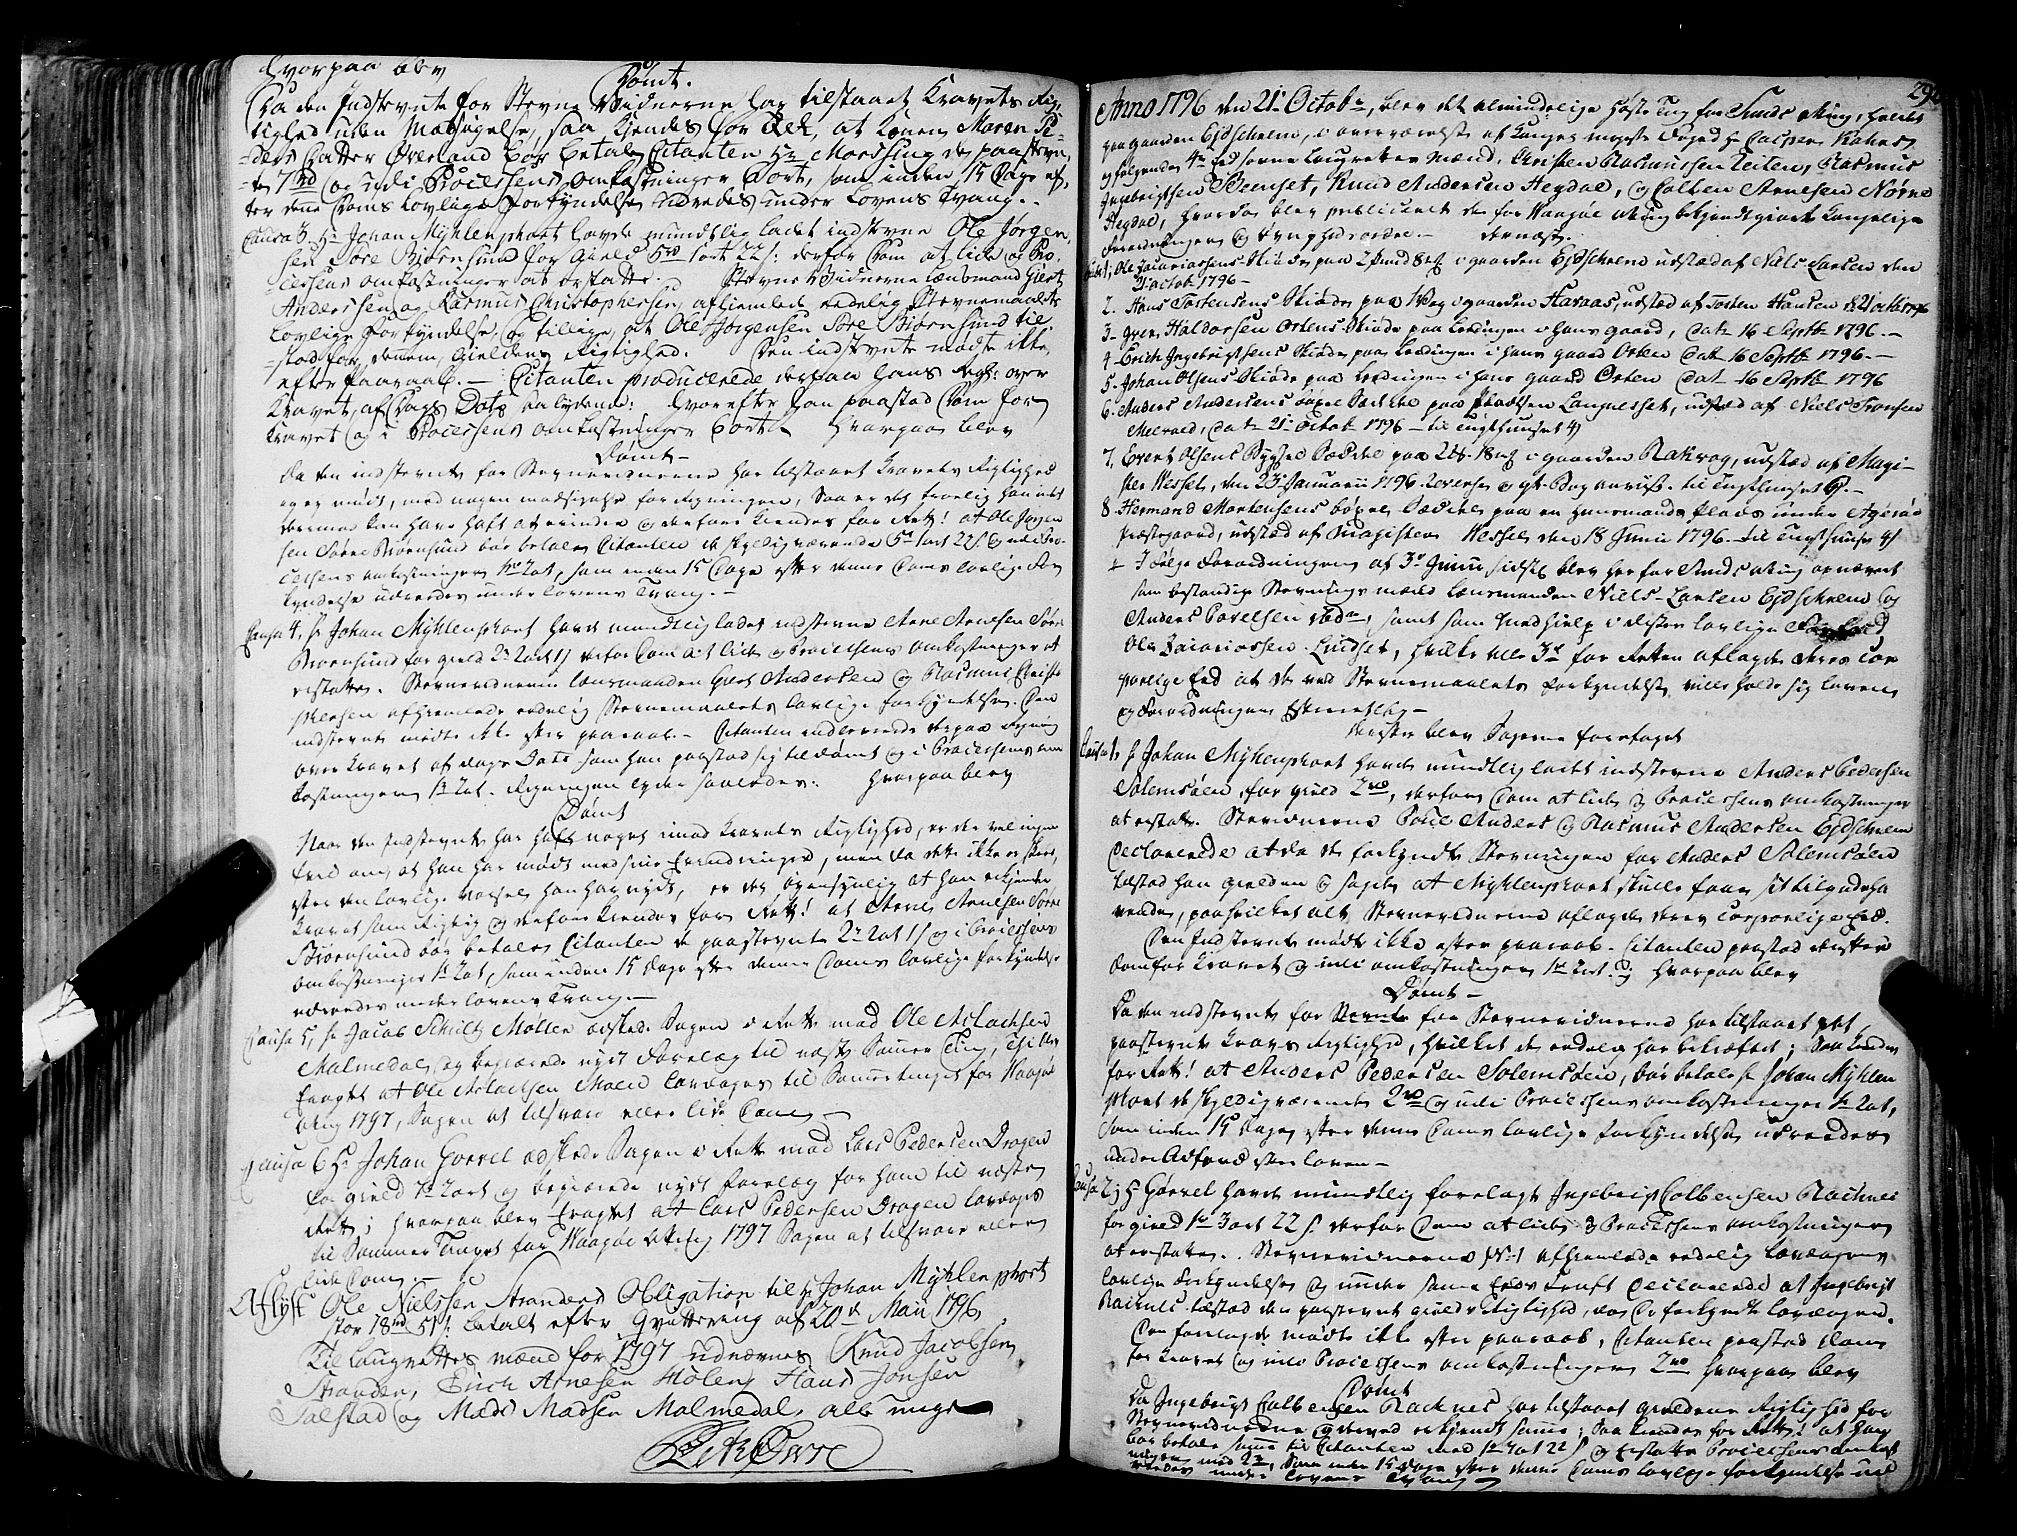 Hvorpaa blev
Dømt.
Da den Indstevnte for Stevne Vidnerne har tilstaaet Kravets Rig-
tighed uden Modsigelse, saa kjendes for Ret, at Konen Maren Pe-
ders Datter Øverland bør betale Citanten Hr Morssing de paastevn-
te 7 rd og udi Processens Omkostninger 3 ort, som inden 15 Dage ef-
ter dene Doms Lovlige Forkyndelse udredes under Lovens Tvang.
Causa 3. Hr Johan Mÿhlenphort havde mundtlig ladet indstevne Ole Jørgen-
sen Søre Biørnsund for Gield 5 rd 1 ort 22 s: derfor Dom at lide og Pro-
cessens omkostninger at erstatte. Stevne Vidnerne Lensmand Giert
Anderssen og Rasmus Christophersen afhiemlede eedelig Stevnemaalets
Lovlige Forkyndelse, og tillige, at Ole Jørgensen Søre Biørnsund til-
stod for dennem Gieldens Rigtighed. Den indstevnte mødte ikke
efter paaraab. — Citanten producerede derpaa hans Regn: over
Kravet af Dags Dato saalydende: Hvorefter han paastod Dom for
Kravet og i Processens omkostninger Hvorpaa blev
Dømt —
Da den indstevnte for Stevnevidnerne har tilstaaet Kravets Rigtighed
og ey mødt, med nogen modsigelse for Regningen, Saa er det troelig han intet
dermod kan have haft at erindre og derfore kiendes for Rett! at Ole Jørgen
sen Søre Biørnsund bør betale Citanten de skyldigværende 5 rd 1 ort 22 s. og udi Pro-
cessens omkostninger 1 rd 2 ort, som inden 15 Dage efter denne Doms lovlige For
kyndelse udreedes under Lovens Tvang. —
Causa 4. Hr Johan Mÿhlenphort havde mundtlig ladet indstevne Arne Arnesen Søre
Biørnsund for gield 2 rd 2 ort 1 s derfor Dom at lide og Processens omkostninger at
erstatte. Stevnevidnerne Lensmanden Giert Andersen og Rasmus Christo
phersen afhiemlede eedelig Stevnemaalets lovlige forkyndelse. Den
indstevnte mødte ikke efter paaraab. — Citanten indleverede derpaa Regning
over Kravet af dags Dato som han paastod sig tildømt og i Processens om
kostninger 1 rd 2 ort. Regningen lyder saaledes: Hvorpaa blev
Dømt
Naar den Indstevnte har haft noget imod Kravets Rigtighed, er der vel ingen
tvivl om, at han har mødt med sine Erindringer, men da dette ikke er skeed,
efter den lovlige varsel han har nydt, er det øyensynlig at han erkiender
Kravet som Rigtig og derfore kiendes for Rett! at Arne Arnesen Søre
Biørnsund bør betale Citanten de paastevnte 2 rd 2 ort 1 s og i Processens
omkostninger 1 rd 2 ort, som inden 15 Dage efter denne Doms lovlige forkyndelse
udreedes under lovens Tvang. —
Causa 5, Hr Jacob Schultz Møller æskede Sagen i Rette mod Ole Aslachsen
Malmedal, og begiærede nyet Forelæg til næste Sommer Ting,
Eragtet at Ole Aslachsen Malmd lavdages til Sommertinget for Waagøe
ting 1797, Sagen at tilsvare eller lide Dom —
Causa 6 Hr Johan Gørvel æskede Sagen i Rette mod Lars Pedersen Drogen
for gield 7 rd 2 ort og begiærede nyet forelæg for ham til næste
Rett; Hvorpaa blev Eragtet at Lars Pedersen Drogen lavdages
til Sommer Tinget for Waagøe ting 1797 Sagen at tilsvare eller
lide Dom. —
Aflyst Ole Nielssen Strandens Obligation til Hr Johan Mÿhlenphort
stor 18 rd 51 s: betalt efter Qvittering af 20 d Maii 1796
Til Laugrettes mænd for 1797 udnævnes Knud Jacobsen
Stranden, Erich Arnesen Molen, Hans Jonsen
Talstad og Mads Madsen Malmedal, alle unge
Anno 1796 den 21 Octobr, blev det almindelige Høste Ting for Sunds ting, holdet
paa gaarden Ejdschrem, i overværelse af Kongens Foged Hr Casper Rahns
og følgende 4re Eedsorne Laugrettes Mænd, Christen Rasmussen Leiten, Rasmus
Ingebrigtsen Beenset, Knud Andersen Hegdal, og Colben Arnesen Nørre
Hegdal, hvorda blev publiceret de for Waagøe ting bekjendtgiorte Kongelige
Forordninger og Ynghedsordre. — dernæst.
1, Ole Zacariassens Skiøde paa 2 pund 8 mk i gaarden Ejdschrem udstæd af Niels Larsen den
21 octob 1796 —
2. Hans Tostensens Skiøde paa 1 Vog i gaarden Haraas, udstæd af Tosten Hansen d: 21 octobr 1796
3. Iver Haldorsen Ortens Skiøde paa Lodningen i hans gaard, Dat: 16 Septbr 1796. —
4 Erich Ingebrigtsens Skiøde paa Lodningen i hans gaard Orten Dat 16 Septbr 1796. —
5. Johan Olsens Skiøde paa Lodningen i hans gaard Orten Dat 16 Septbr 1796
6. Anders Andersens bøxel Sædel paa Pladsen Langnesset, udstæd af Niels Tronsen
Meeraas, Dat: 21 octob 1796 — til Tugthuuset 4 s
7, Evert Olsens Bygsel Sæddel paa 2 pd: 18 mk i gaarden Rakvog, udstæd af Magi-
ster Wessel, den 23 Januarii 1796. Revers: og gt. til Tugthuuset —
8 Hermand Mortensens bøxel Sæddel paa en huusmands plads under Agerøe
præstegaard, udstæd af Magister Wessel den 18 Junii 1796. til Tugthuuset 4 s
I Følge Forordningen af 3 Junii sidst blev her for Sunds ting opnævnt
som bestandige Stevnings mænd Lensmanden Niels Larsen Ejdschrem og
Anders Povelsen, samt som Medhielp i disses lovlige Forfald
Ole Zacariassen Lindset, hvilke alle 3de for Retten aflagde deres Cor
porlige Eed at de ved Stevnemaalets forkyndelse ville holde sig loven
og Forordningen efterretlig —
derefter blev Sagerne foretaget
Causa 1. Hr Johan Mÿhlenphort havde mundtlig ladet indstevne Anders Pedersen
Solemsøen, for gield 2 rd, derfor Dom at lide og Processens omkostninger
at erstatte. Stevnevidnerne Povel Anders og Rasmus Andersen Ejdschrem
declarerede at da de forkyndte Stevningen for Anders Solemsøen
tilstod han gielden og sagde at Mÿhlenphort skulle faae sit tilgodeha
vende, paa hvilket alt Stevnevidnerne aflagde deres Corporlige Eed.
Den Indstevnte mødte ikke efter paaraab. Citanten paastod derefter
Dom for Kravet og udi omkostninger 1 rd 2 ort. Hvorpaa blev
Dømt —
Da den indstevnte for Stevnevidnerne har tilstaaet det
paastevnte Kravs Rigtighed, hvilket de eedelig har bekræftet; Saa kiendes
for Rett! at Anders Pedersen Solemsøen, bør betale Hr Johan Mÿhlen
phort de skyldigværende 2 rd og udi Processens omkostninger 1 rd 2 ort,
som inden 15 Dage efter denne Doms lovlige forkyndelse udreedes
under Adfærd efter loven —
Causa 2; Hr Gørvel havde mundtlig forelagt Ingebrigt Colbensen Racknes
for gield 1 rd 3 ort 22 s. derfor Dom at lide og Processens omkostninger
at erstatte. Stevnevidnerne afhiemlede eedelig Lavdagens
lovlige Forkyndelse og under samme Eeds Kraft declarerede at Ingebrigt
Racknes tilstod den paastevnte gields rigtighed, da de forkyndte Lavdagen.
Den forelagde mødte ikke efter paaraab, Citanten paastod Dom
for Kravet og udi Processens omkostninger 2 rd Hvorpaa blev
Dømt
Da Ingebrigt Colbensen Racknes har tilstaaet gieldens Rigtighed for
Stevnevidnerne og derved erkjendt samme; Saa kiendes for Rett! at han
bør betale samme til Citanten med 1 rd 3 ort 22 s og Erstatte Processens omkost
ninger med 2 rd, som inden 15 Dage efter denne Doms lovlige forkyndelse ud
reedes under lovens Tvang —